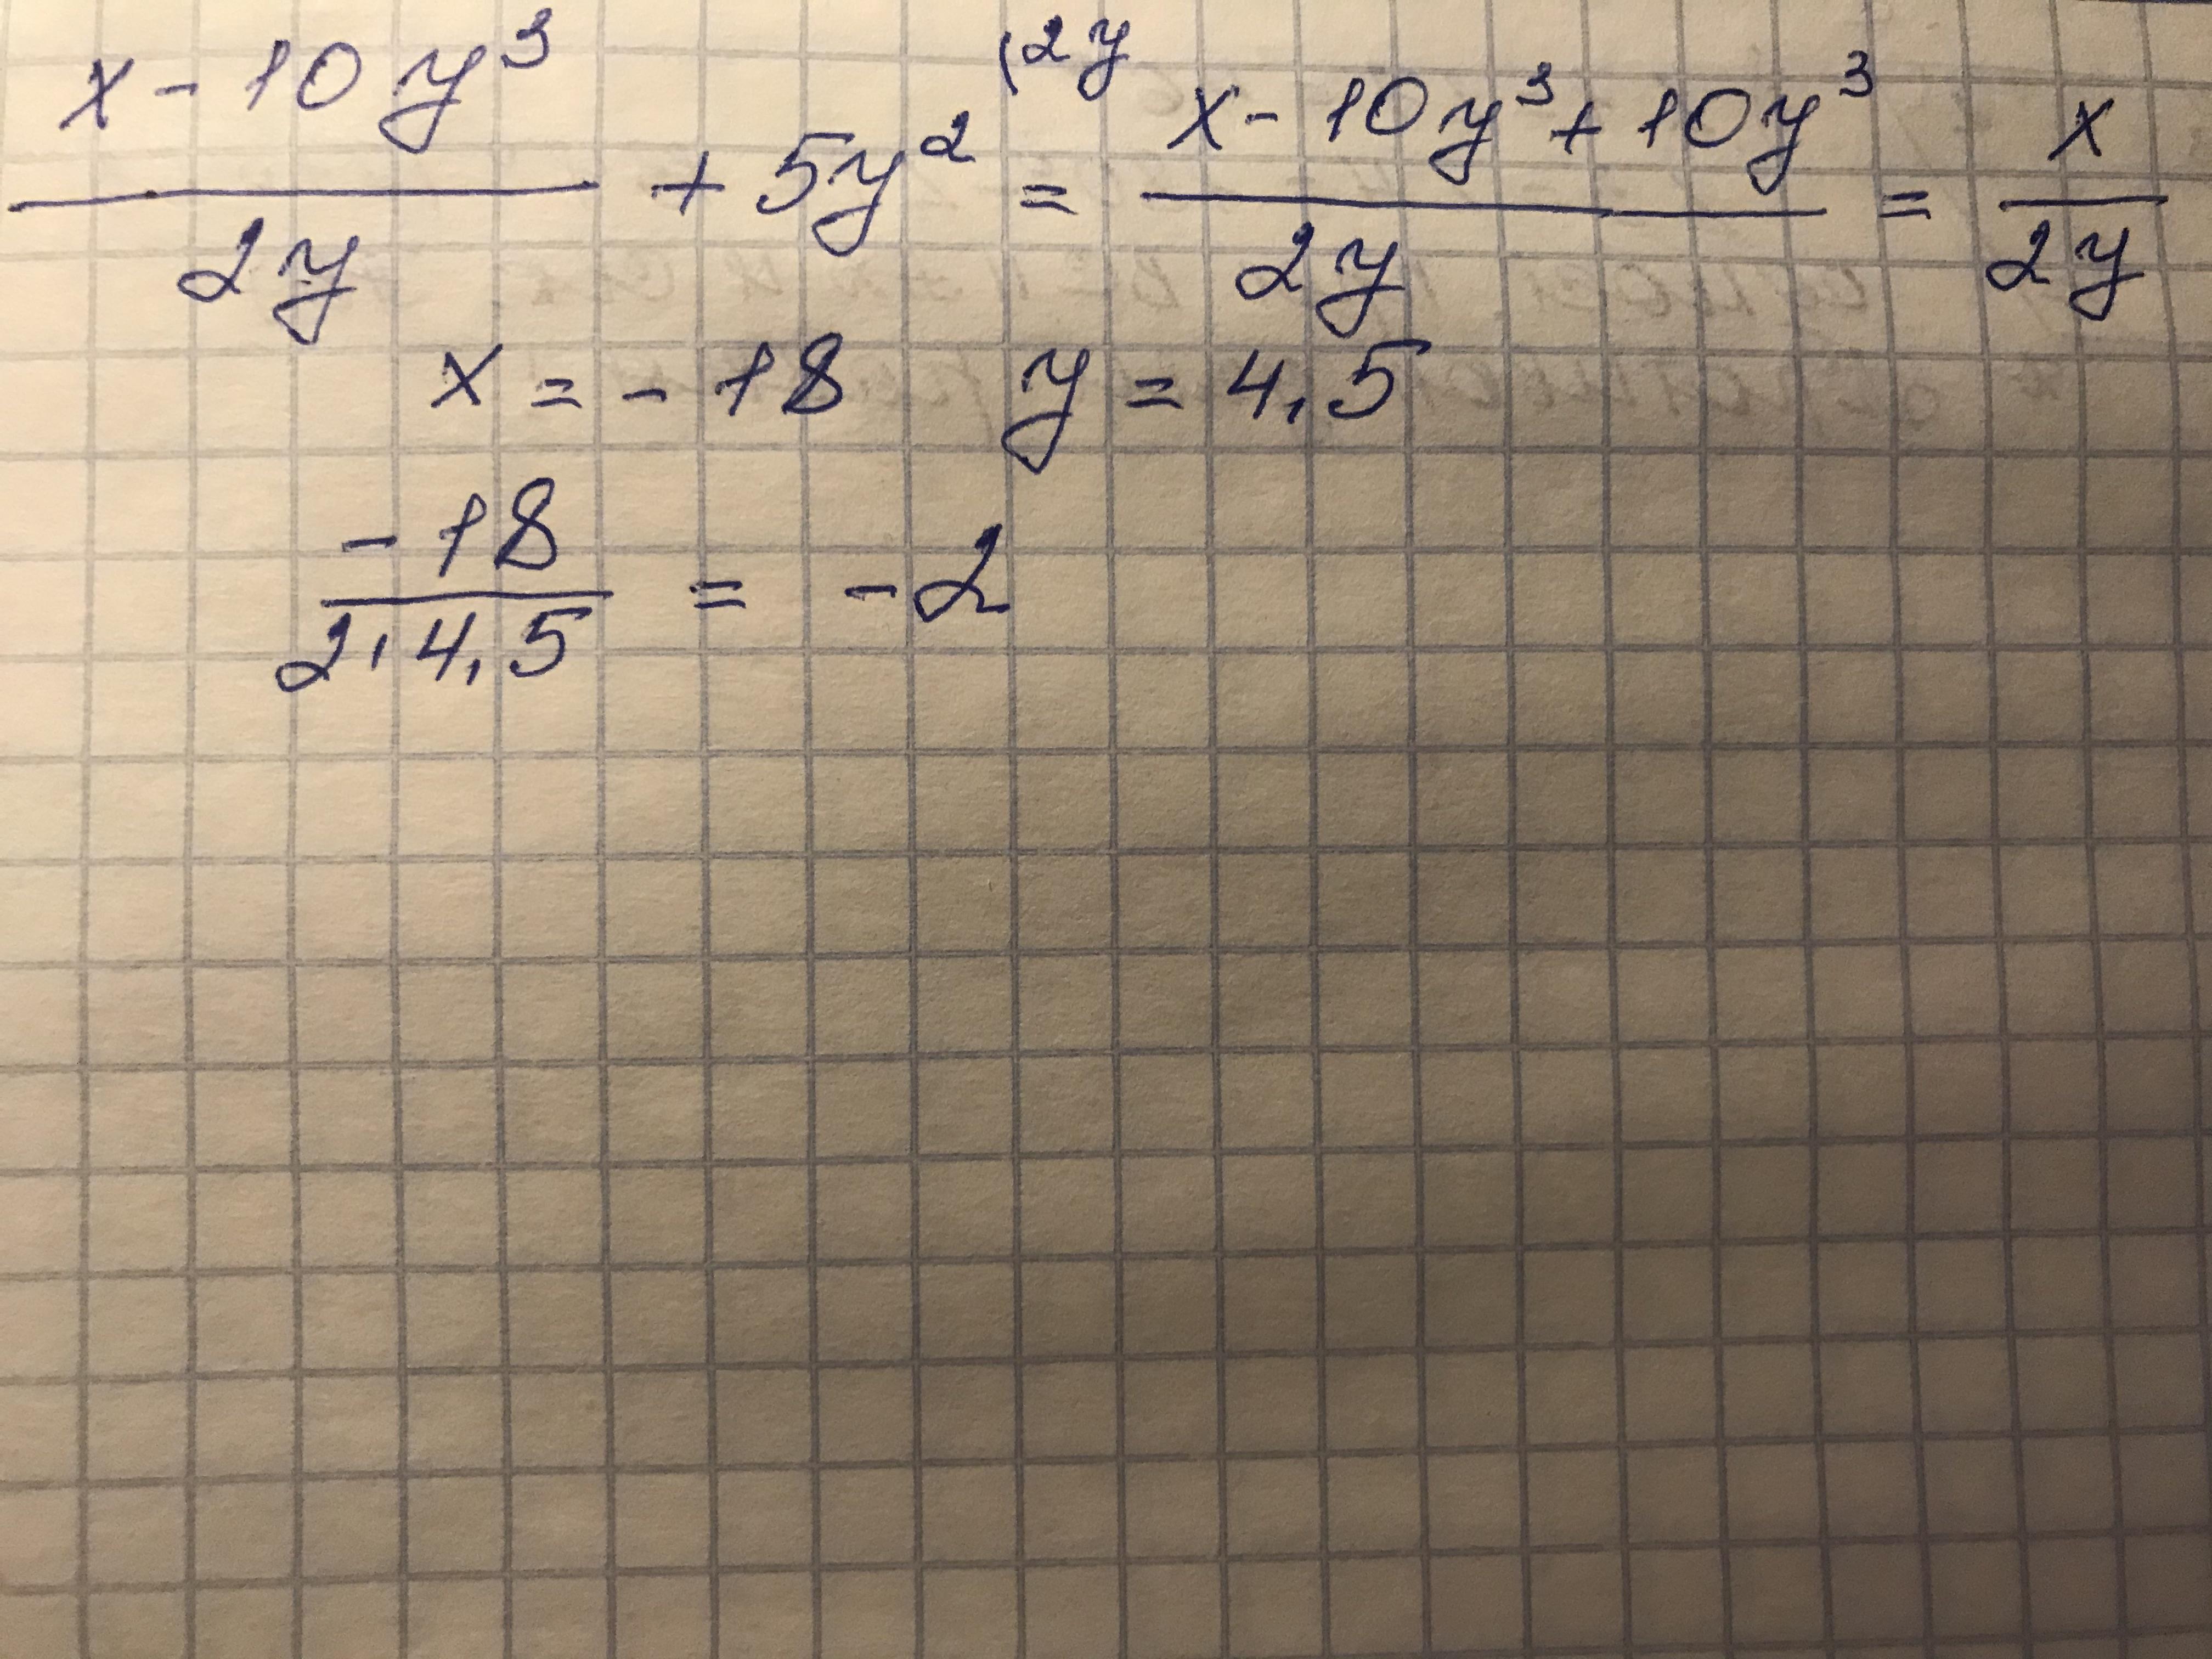 (x - 10y³)/(2y) + 5y² (2y = (x - 10y³ + 10y³)/(2y) = x/(2y)
x = -18 y = 4,5
-18/(2·4,5) = -2